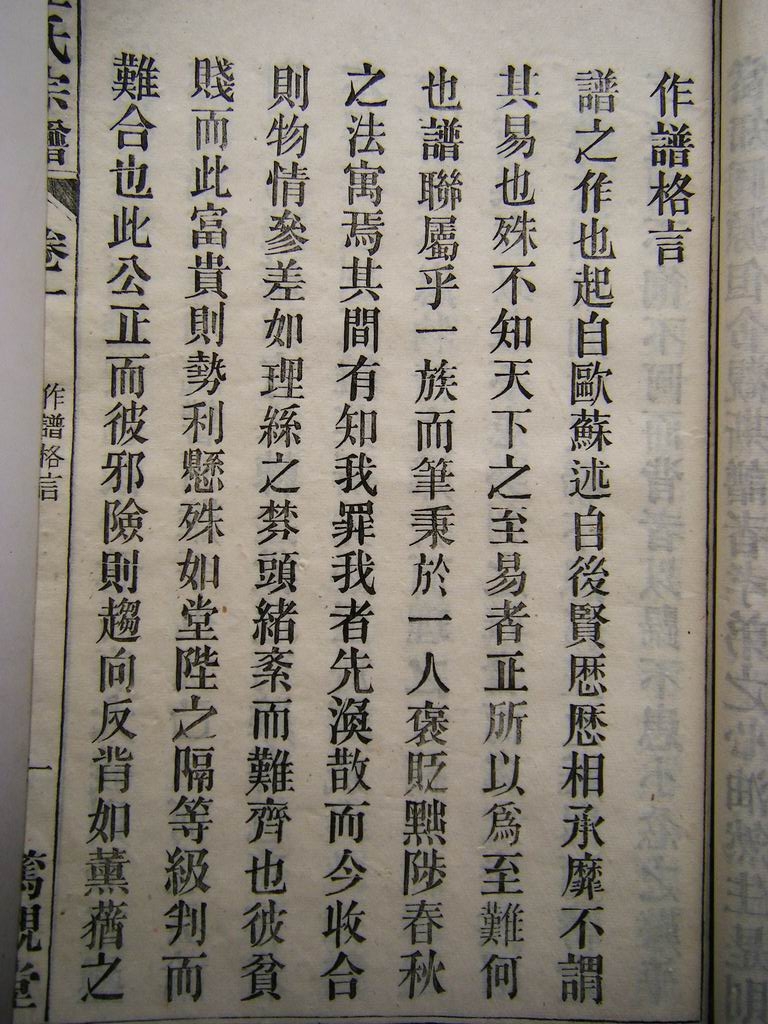 作譜格言
譜之作也起自歐蘇述自後賢歴歴相承靡不謂
其易也殊不知天下之至易者正所以爲至難何
也譜聯屬乎一族而筆秉於一人褒貶黜陟春秋
之法寓焉其間有知我罪我者先渙散而今收合
則物情參差如理絲之棼頭緒紊而難齊也彼貧
賤而此富貴則勢利懸殊如堂陛之隔等級判而
難合也此公正而彼邪險則趨向反背如薰蕕之
氏宗譜
卷一
作譜格言
一
篤親堂